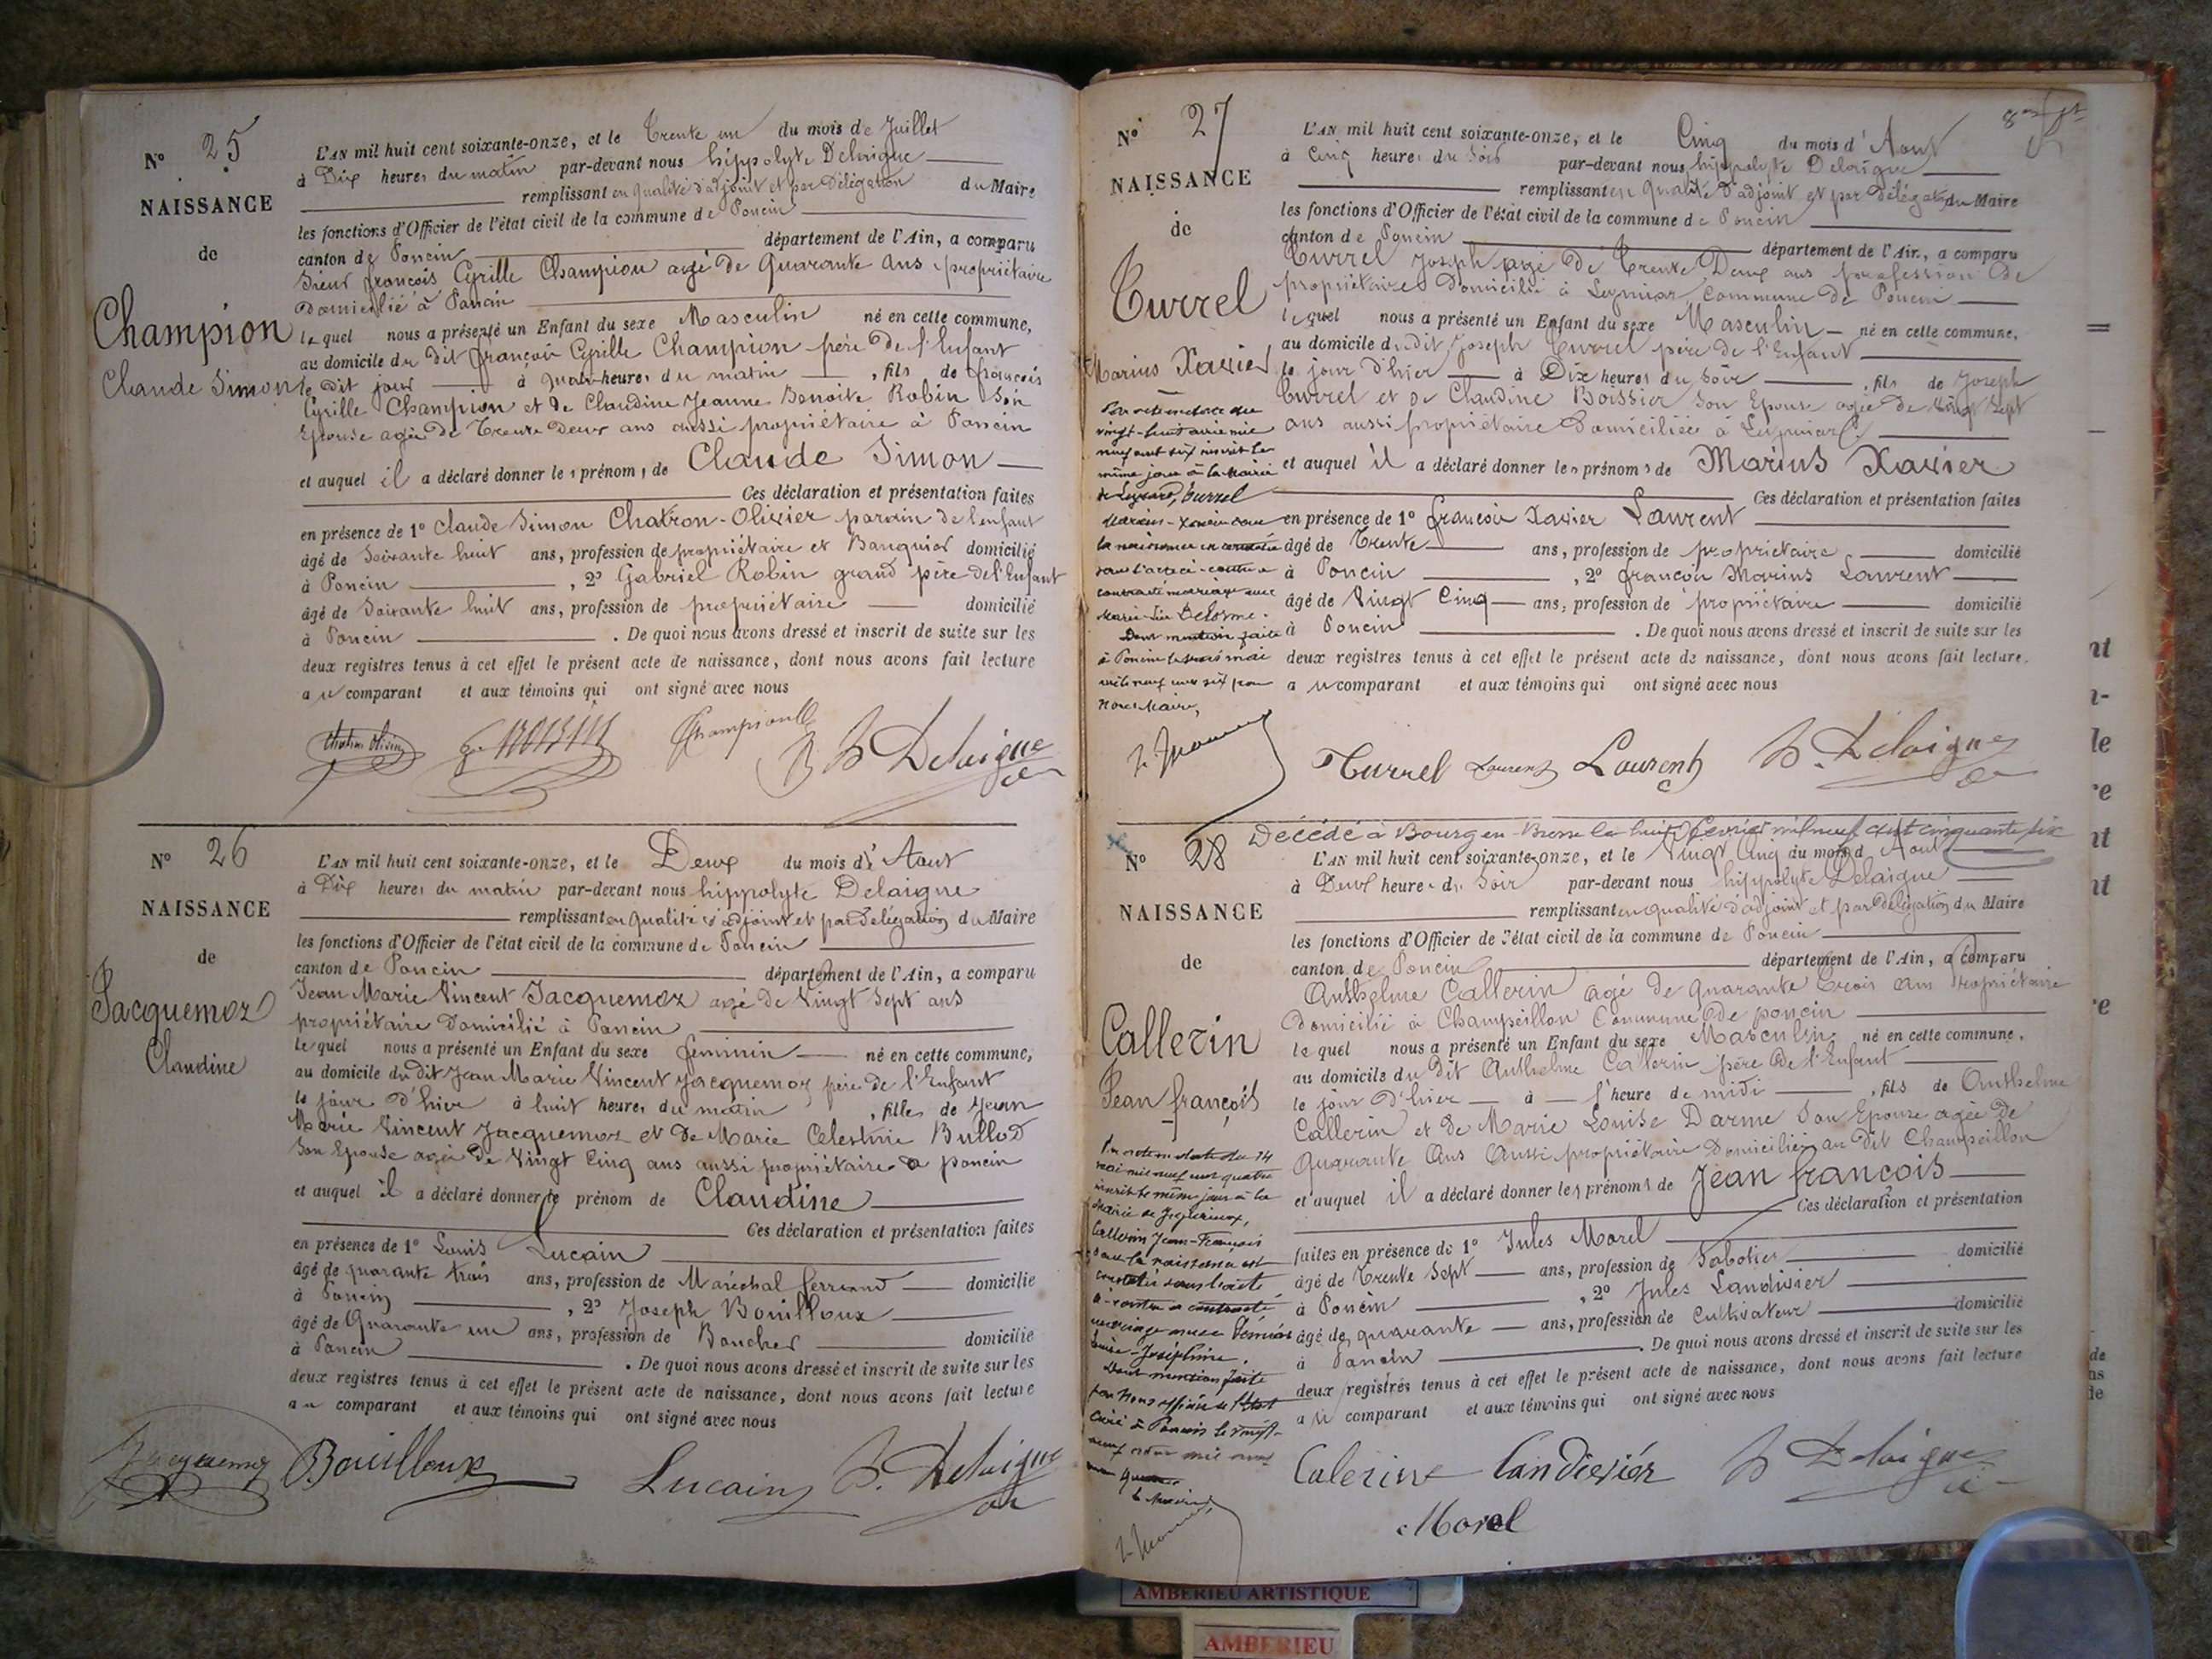 N° 25
NAISSANCE
de
Champion
Claude Simon
L'AN mil huit cent soixante-onze, et le Trente un du mois de Juillet
à Dix heures du matin par-devant nous hippolyte Delaigue
remplissant en qualité d'adjoint et par Délégation du Maire
les fonctions d'Officier de l'état civil de la commune de Poncin
canton de Poncin département de l'Ain, a comparu
Sieur françois Cyrille Champion agé de Quarante ans propriétaire
Domicilié à Poncin
le quel nous a présenté un Enfant du sexe Masculin né en cette commune,
au domicile du dit françois Cyrille Champion père de l'Enfant
le dit jour à quatre heures du matin, fils de françois
Cyrille Champion et de Claudine Jeanne Benoite Robin Son
Epouse agée de Trente Deux ans aussi propriétaire à Poncin
et auquel il a déclaré donner les prénoms de Claude Simon
Ces déclaration et présentation faites
en présence de 1° Claude Simon Chatron-Olivier parrain de l'enfant
âgé de Soixante huit ans, profession de propriétaire et Banquier domicilié
à Poncin, 2° Gabriel Robin grand père de l'Enfant
âgé de Soixante huit ans, profession de propriétaire domicilié
à Poncin. De quoi nous avons dressé et inscrit de suite sur les
deux registres tenus à cet effet le présent acte de naissance, dont nous avons fait lecture
au comparant et aux témoins qui ont signé avec nous
Chatron Olivier g. Robin Champion h. Delaigue
N° 26
NAISSANCE
de
Jacquemoz
Claudine
L'AN mil huit cent soixante-onze, et le Deux du mois d'Aout
à Dix heures du matin par-devant nous hippolyte Delaigue
remplissant en qualité d'adjoint et par Délégation du Maire
les fonctions d'Officier de l'état civil de la commune de Poncin
canton de Poncin département de l'Ain, a comparu
Jean Marie Vincent Jacquemoz agé de Vingt Sept ans
propriétaire domicilié à Poncin
le quel nous a présenté un Enfant du sexe feminin né en cette commune,
au domicile du dit Jean Marie Vincent Jacquemoz père de l'Enfant
le jour d'hier à huit heures du matin, fille de Jean
Marie Vincent Jacquemoz et de Marie Celestine Bullod
Son Epouse agée de Vingt Cinq ans aussi propriétaire à poncin
et auquel il a déclaré donner le prénom de Claudine
Ces déclaration et présentation faites
en présence de 1° Louis Lucain
âgé de quarante trois ans, profession de Maréchal ferrand domicilié
à Poncin, 2° Joseph Bouilloux
âgé de Quarante un ans, profession de Boucher domicilié
à Poncin. De quoi nous avons dressé et inscrit de suite sur les
deux registres tenus à cet effet le présent acte de naissance, dont nous avons fait lecture
au comparant et aux témoins qui ont signé avec nous
Jacquemoz Bouilloux Lucain h. Delaigue
N° 27
NAISSANCE
de
Turrel
Marius Xavier
Par acte en date du
vingt-huit avril mil
neuf cent six inscrit le
même jour à la Mairie
de Leyssard, Turrel
Marius-Xavier dont
la naissance est constatée
dans l'acte ci-contre a
contracté mariage avec
Marie Delorme.
Dont mention faite
à Poncin le mai
mil neuf cent six par
Nous Maire,
L'AN mil huit cent soixante-onze, et le Cinq du mois d'Aout
à Cinq heures du Soir par-devant nous hippolyte Delaigue
remplissant en qualité d'adjoint et par délégation du Maire
les fonctions d'Officier de l'état civil de la commune de Poncin
canton de Poncin département de l'Ain, a comparu
Turrel Joseph agé de Trente Deux ans profession de
propriétaire Domicilié à Leymiat Commune de Poncin
le quel nous a présenté un Enfant du sexe Masculin né en cette commune,
au domicile du dit Joseph Turrel père de l'Enfant
le jour d'hier à Dix heures du Soir, fils de Joseph
Turrel et de Claudine Boissier son Epouse agée de Vingt Sept
ans aussi propriétaire Domiciliée à Leymiat
et auquel il a déclaré donner les prénoms de Marius Xavier
Ces déclaration et présentation faites
en présence de 1° françois Xavier Laurent
âgé de Trente ans, profession de propriétaire domicilié
à Poncin, 2° françois Marius Laurent
âgé de Vingt Cinq ans, profession de propriétaire domicilié
à Poncin. De quoi nous avons dressé et inscrit de suite sur les
deux registres tenus à cet effet le présent acte de naissance, dont nous avons fait lecture.
au comparant et aux témoins qui ont signé avec nous
Turrel Laurent Laurent h. Delaigue
Décédé à Bourg en Bresse le huit février mil neuf cent cinquante six
N° 28
NAISSANCE
de
Callerin
Jean françois
Par acte en date du 14
mai mil neuf cent quatre
inscrit le même jour à la
Mairie de Jujurieux,
Callerin Jean-François
dont la naissance est
constatée dans l'acte
ci-contre a contracté
mariage avec
Louise-Joséphine.
Dont mention faite
par Nous officier de l'état
civil à Poncin le vingt-
neuf mai mil neuf
cent quatre.
Le Maire,
L'AN mil huit cent soixante-onze, et le Vingt Cinq du mois d'Aout
à Deux heures du Soir par-devant nous hippolyte Delaigue
remplissant en qualité d'adjoint et par délégation du Maire
les fonctions d'Officier de l'état civil de la commune de Poncin
canton de Poncin département de l'Ain, a comparu
Anthelme Callerin agé de quarante Trois ans propriétaire
Domicilié à Champeillon Commune de poncin
le quel nous a présenté un Enfant du sexe Masculin né en cette commune,
au domicile du dit Anthelme Calerin père de l'Enfant
le jour d'hier à l'heure de midi, fils de Anthelme
Callerin et de Marie Louise Darme Son Epouse agée de
Quarante Ans Aussi propriétaire Domiciliée au dit Champeillon
et auquel il a déclaré donner les prénoms de Jean françois
Ces déclaration et présentation
faites en présence de 1° Jules Morel
âgé de Trente Sept ans, profession de Sabotier domicilié
à Poncin, 2° Jules Landivier
âgé de quarante ans, profession de Cultivateur domicilié
à Poncin. De quoi nous avons dressé et inscrit de suite sur les
deux registres tenus à cet effet le présent acte de naissance, dont nous avons fait lecture
au comparant et aux témoins qui ont signé avec nous
Calerin Landivier h. Delaigue
Morel
AMBERIEU ARTISTIQUE
AMBERIEU